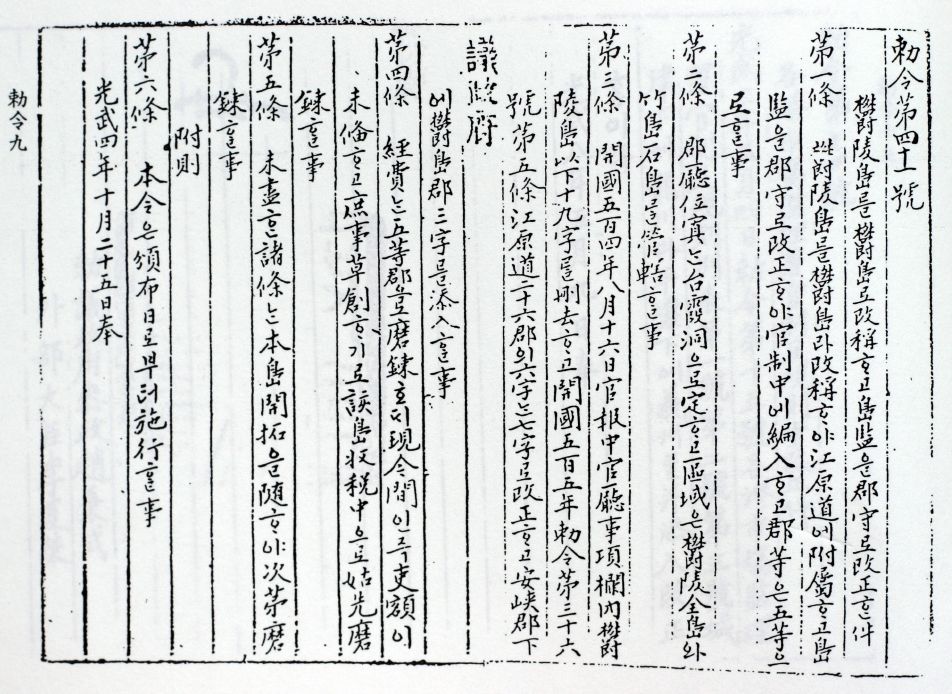 勅令第四十一號
欝陵島를欝島로改稱ᄒᆞ고島監을郡守로改正ᄒᆞᆫ件
第一條 欝陵島를欝島라改稱ᄒᆞ야江原道에附屬ᄒᆞ고島
監을郡守로改正ᄒᆞ야官制中에編入ᄒᆞ고郡等은五等으
로ᄒᆞᆯ事
第二條 郡廳位寘는台霞洞으로定ᄒᆞ고區域은欝陵全島와
竹島石島를管轄ᄒᆞᆯ事
第三條 開國五百四年八月十六日官報中官廳事項欄內欝
陵島以下十九字를刪去ᄒᆞ고開國五百五年勅令第三十六
號第五條江原道二十六郡의六字는七字로改正ᄒᆞ고安峽郡下
議政府
에欝島郡三字를添入ᄒᆞᆯ事
第四條 經費는五等郡으로磨鍊호ᄃᆡ現今間인즉吏額이
未備ᄒᆞ고庶事草創ᄒᆞ기로該島收稅中으로姑先磨
鍊ᄒᆞᆯ事
第五條 未盡ᄒᆞᆫ諸條는本島開拓을隨ᄒᆞ야次第磨
鍊ᄒᆞᆯ事
附則
第六條 本令은頒布日로부터施行ᄒᆞᆯ事
光武四年十月二十五日奉
勅令九